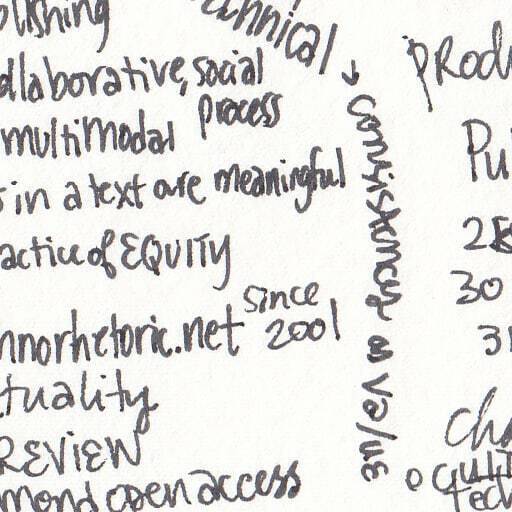 blishing
technical
ollaborative, social
process
multimodal
in a text are meaningful
actice of EQUITY
nnorhetoric.net since
2001
tuality
REVIEW
mond open access
→ consistency as value
Produ
Pu
30
31
Cha